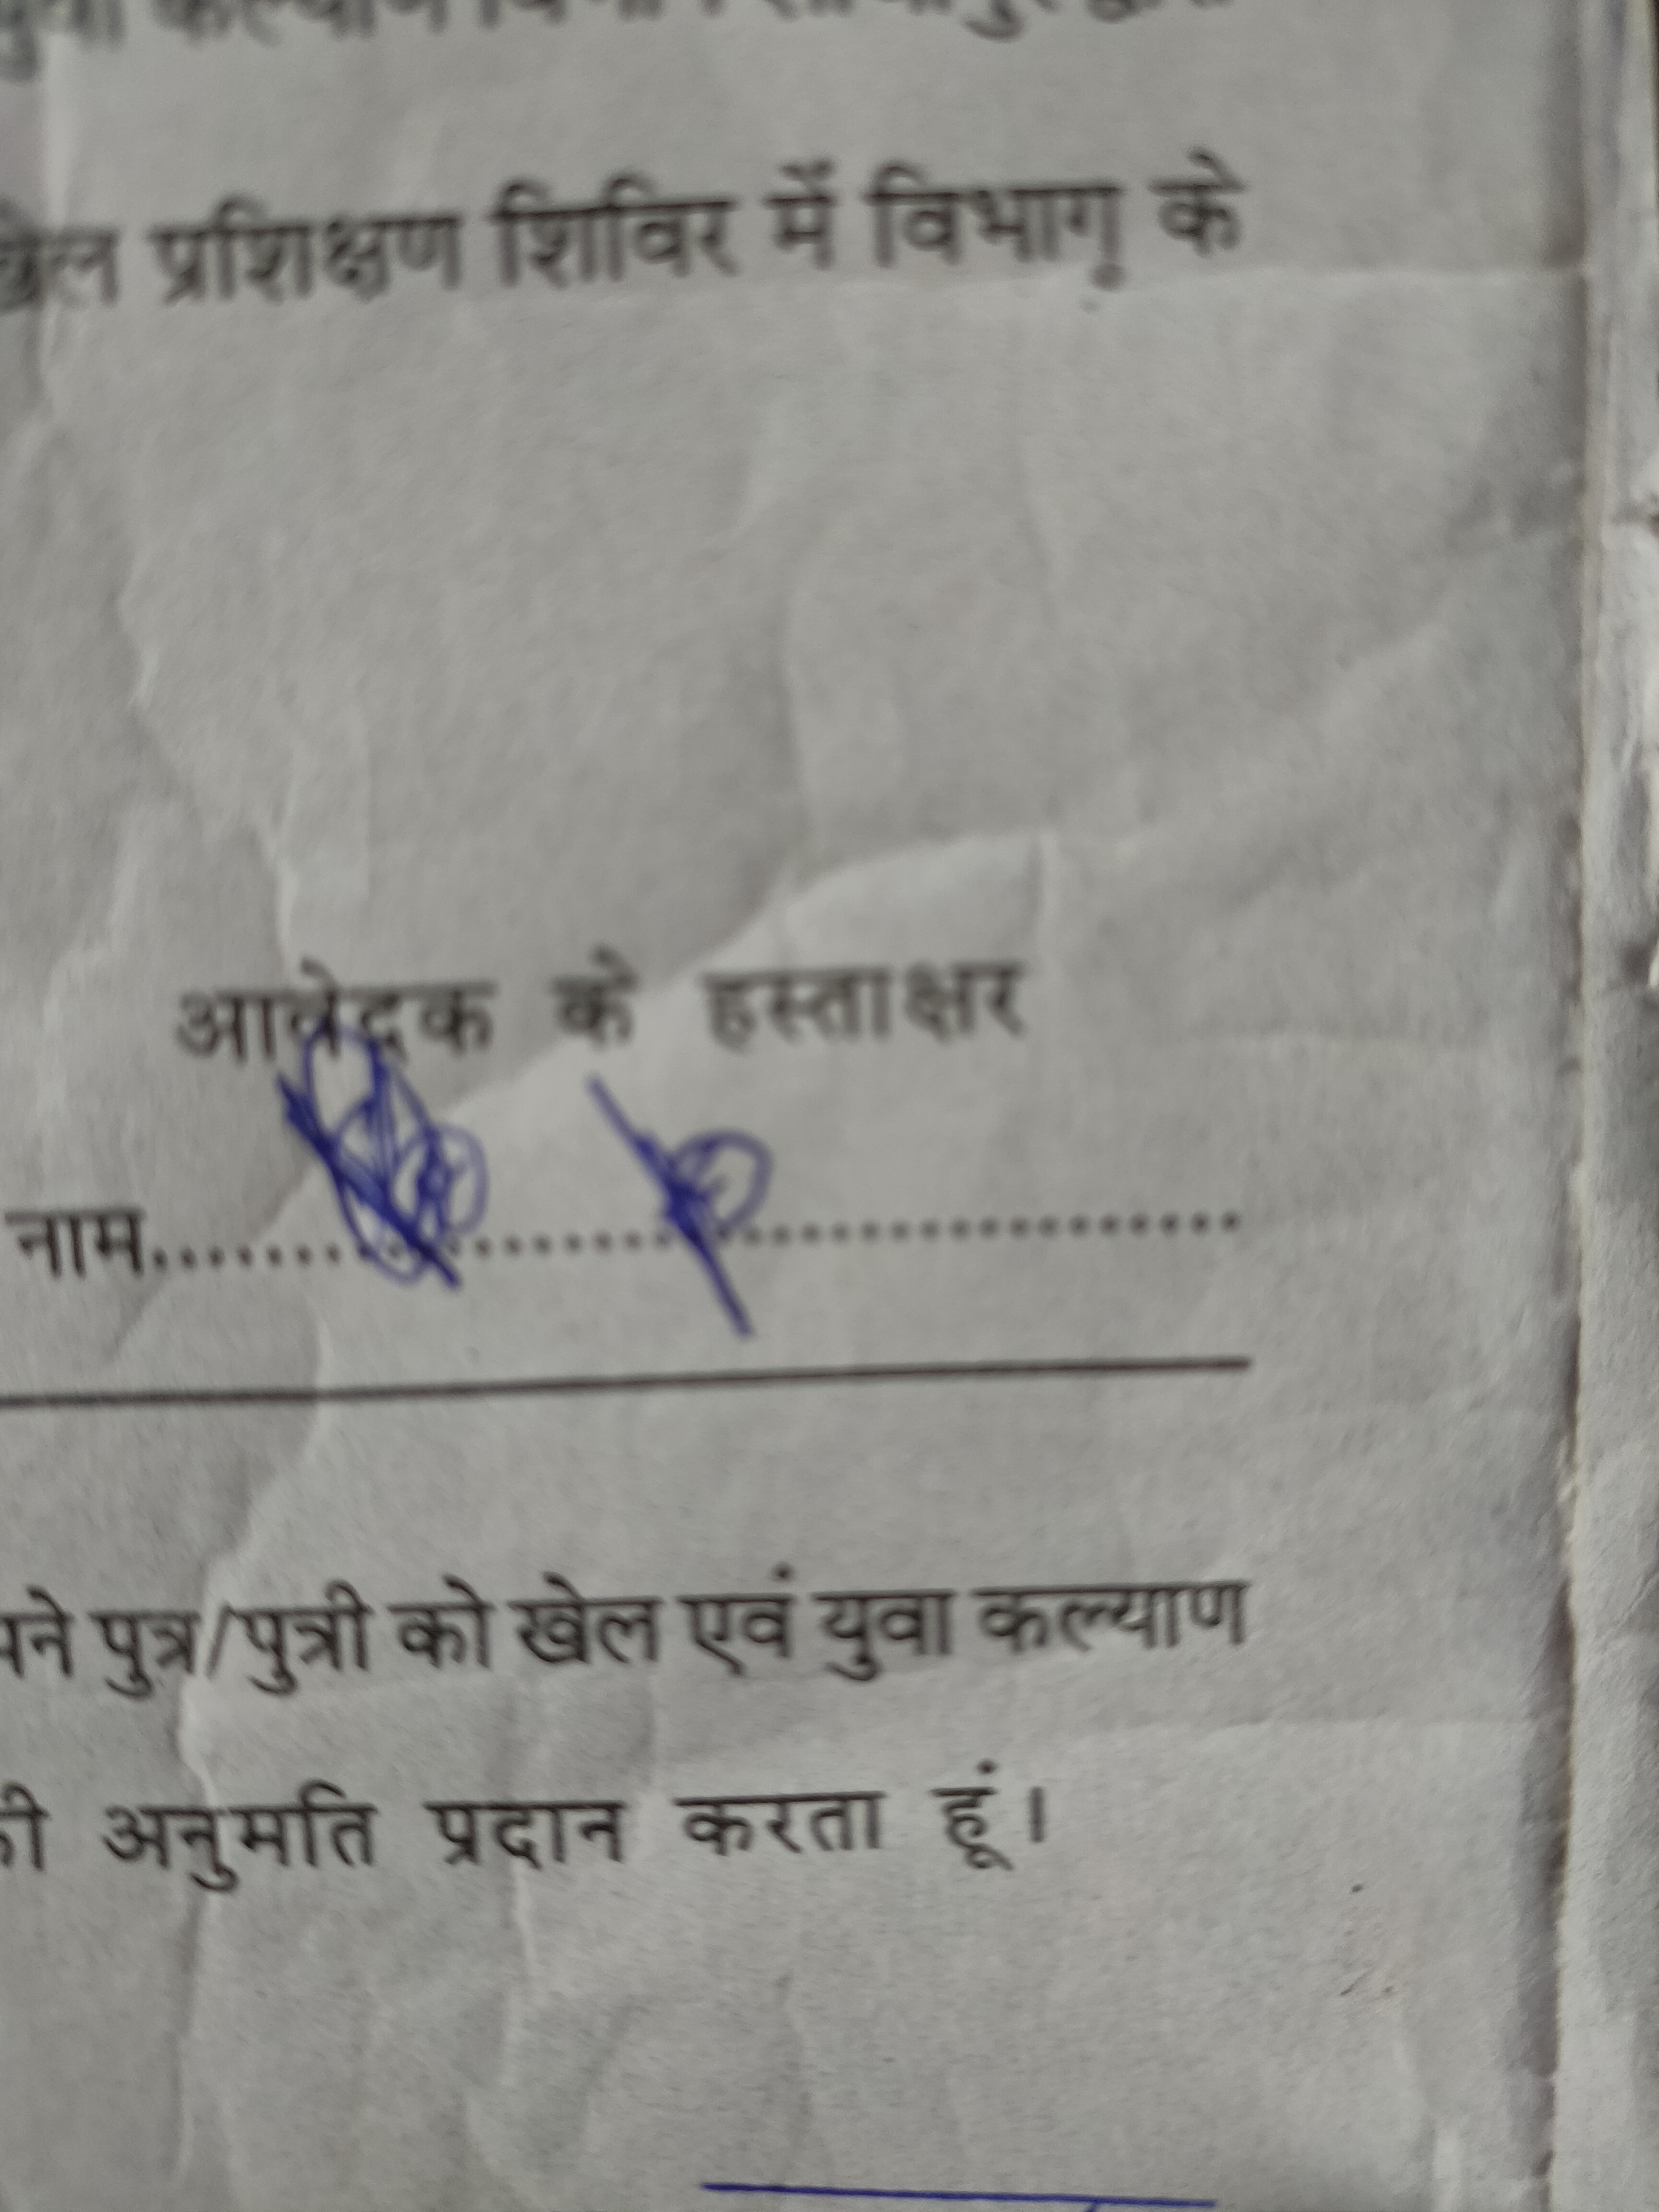 युवा कल्याण विभाग
खेल प्रशिक्षण शिविर में विभाग के
आवेदक के हस्ताक्षर
नाम..........................................
पने पुत्र/पुत्री को खेल एवं युवा कल्याण
की अनुमति प्रदान करता हूं।